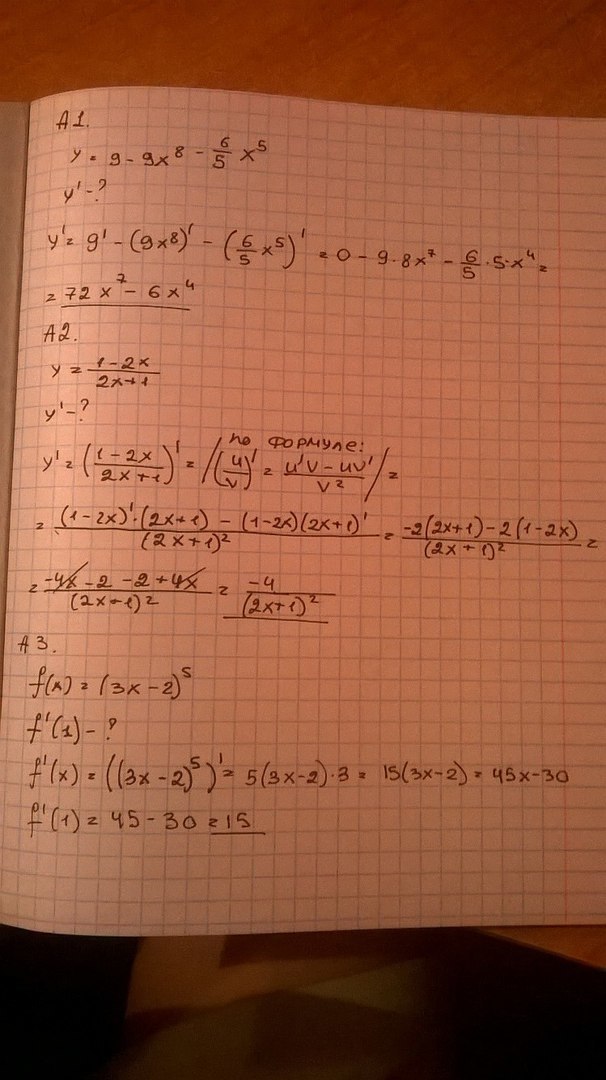 A1.
y = 9 - 9x⁸ - 6/5 x⁵
y' - ?
y' = 9' - (9x⁸)' - (6/5 x⁵)' = 0 - 9·8x⁷ - 6/5·5·x⁴ =
= 72x⁷ - 6x⁴
A2.
y = (1-2x)/(2x+1)
y' - ?
по формуле:
y' = ((1-2x)/(2x+1))' = /(u/v)' = (u'v - uv')/v²/ =
= ((1-2x)'·(2x+1) - (1-2x)(2x+1)')/(2x+1)² = (-2(2x+1) - 2(1-2x))/(2x+1)² =
= (-4x - 2 - 2 + 4x)/(2x+1)² = -4/(2x+1)²
A3.
f(x) = (3x-2)⁵
f'(1) - ?
f'(x) = ((3x-2)⁵)' = 5(3x-2)·3 = 15(3x-2) = 45x-30
f'(1) = 45 - 30 = 15